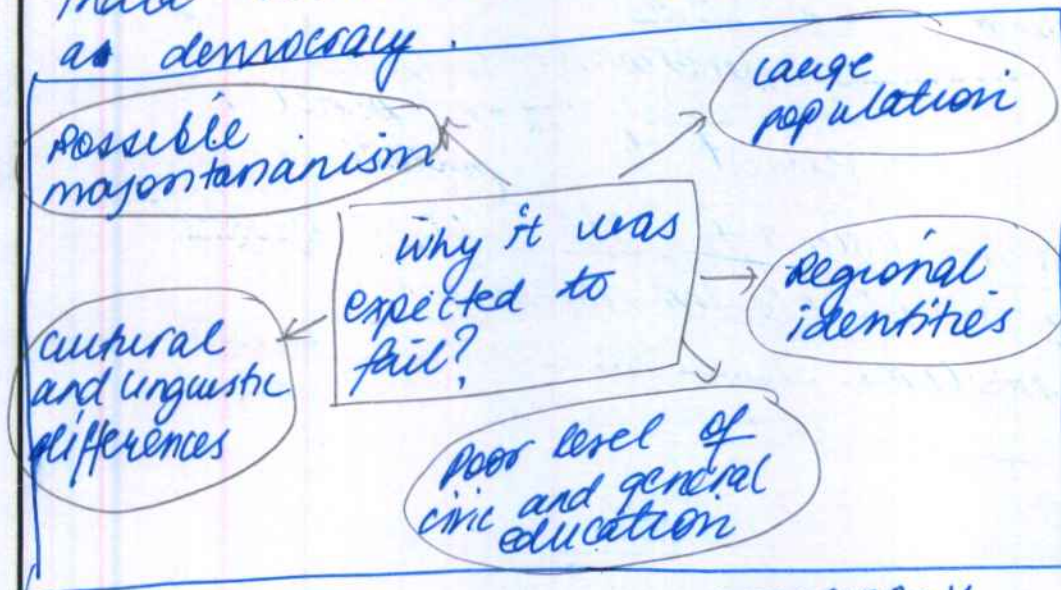 as democracy.
Possible
majoritarianism
large
population
why it was
expected to
fail?
Regional
identities
cultural
and linguistic
differences
Poor level of
civic and general
education